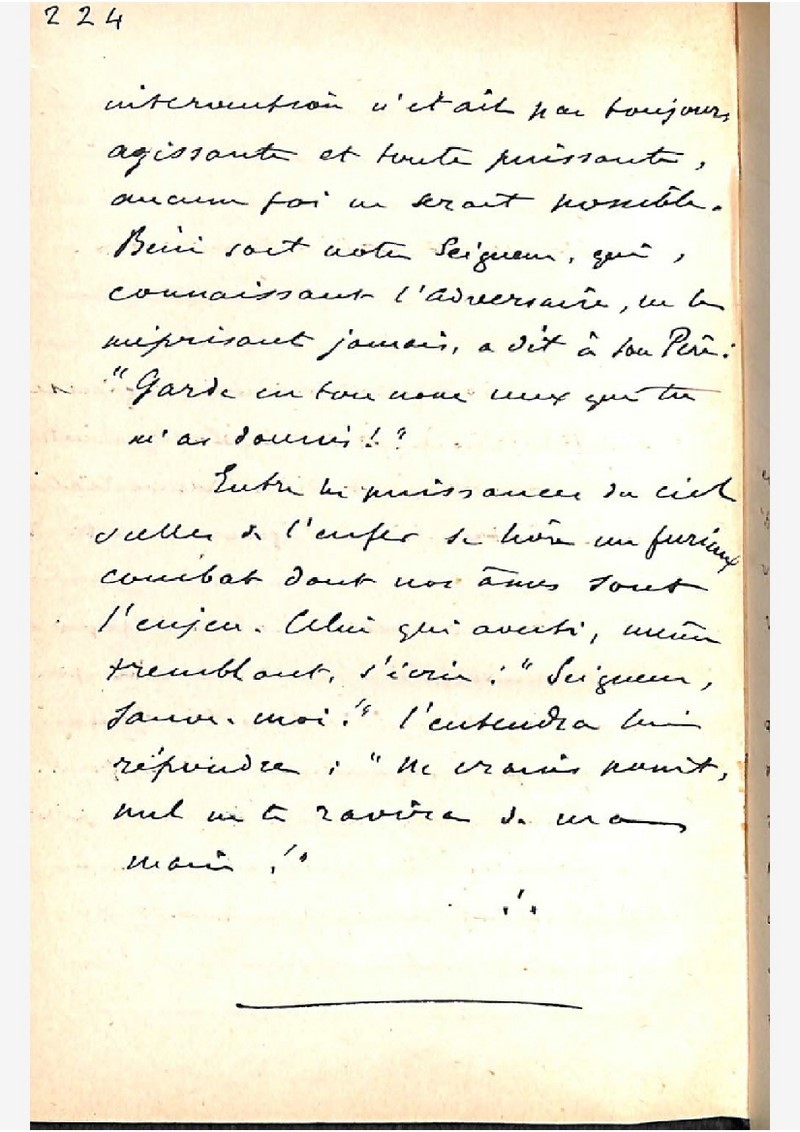 224
intervention n'était pas toujours
agissante et toute puissante,
aucune foi ne serait possible.
Béni soit notre Seigneur, qui,
connaissant l'adversaire, ne le
méprisant jamais, a dit à son Père :
"Garde en ton nom ceux que tu
m'as donnés !"
Entre les puissances du ciel
et celles de l'enfer se livre un furieux
combat dont nos âmes sont
l'enjeu. Celui qui averti, même
tremblant, s'écrie : "Seigneur,
sauve-moi !" l'entendra lui
répondre : "Ne crains point,
nul ne te ravira de ma
main !"